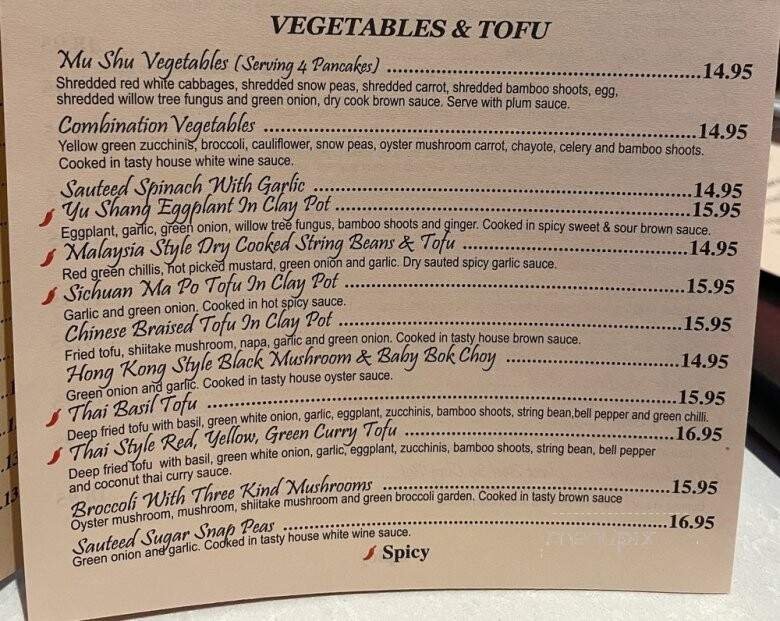 VEGETABLES & TOFU
Mu Shu Vegetables (Serving 4 Pancakes) ..........14.95
Shredded red white cabbages, shredded snow peas, shredded carrot, shredded bamboo shoots, egg,
shredded willow tree fungus and green onion, dry cook brown sauce. Serve with plum sauce.
Combination Vegetables ..........14.95
Yellow green zucchinis, broccoli, cauliflower, snow peas, oyster mushroom carrot, chayote, celery and bamboo shoots.
Cooked in tasty house white wine sauce.
Sauteed Spinach With Garlic ..........14.95
Yu Shang Eggplant In Clay Pot ..........15.95
Eggplant, garlic, green onion, willow tree fungus, bamboo shoots and ginger. Cooked in spicy sweet & sour brown sauce.
Malaysia Style Dry Cooked String Beans & Tofu ..........14.95
Red green chillis, hot picked mustard, green onion and garlic. Dry sauted spicy garlic sauce.
Sichuan Ma Po Tofu In Clay Pot ..........15.95
Garlic and green onion. Cooked in hot spicy sauce.
Chinese Braised Tofu In Clay Pot ..........15.95
Fried tofu, shiitake mushroom, napa, garlic and green onion. Cooked in tasty house brown sauce.
Hong Kong Style Black Mushroom & Baby Bok Choy ..........14.95
Green onion and garlic. Cooked in tasty house oyster sauce.
Thai Basil Tofu ..........15.95
Deep fried tofu with basil, green white onion, garlic, eggplant, zucchinis, bamboo shoots, string bean,bell pepper and green chilli.
Thai Style Red, Yellow, Green Curry Tofu ..........16.95
Deep fried tofu with basil, green white onion, garlic, eggplant, zucchinis, bamboo shoots, string bean, bell pepper
and coconut thai curry sauce.
Broccoli With Three Kind Mushrooms ..........15.95
Oyster mushroom, mushroom, shiitake mushroom and green broccoli garden. Cooked in tasty brown sauce
Sauteed Sugar Snap Peas ..........16.95
Green onion and garlic. Cooked in tasty house white wine sauce.
Spicy